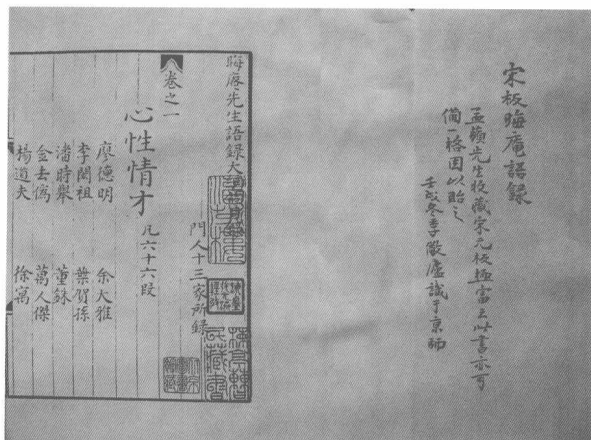 宋板晦庵語録
孟翰先生收藏宋元板極富以此書亦可
備一格因以貽之
壬戌冬季微廬識于京師
晦庵先生語録大
門人十三家所録
卷之一
心性情才
凡六十六段
廖德明 余大雅
李閎祖 葉賀孫
潘時舉 董銖
金去偽 萬人傑
楊道夫 徐㝢